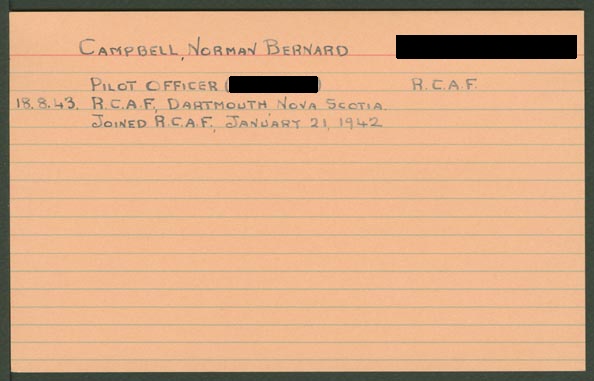 CAMPBELL, NORMAN BERNARD
PILOT OFFICER ( ) R.C.A.F.
18.8.43. R.C.A.F., DARTMOUTH, NOVA SCOTIA.
JOINED R.C.A.F., JANUARY 21, 1942